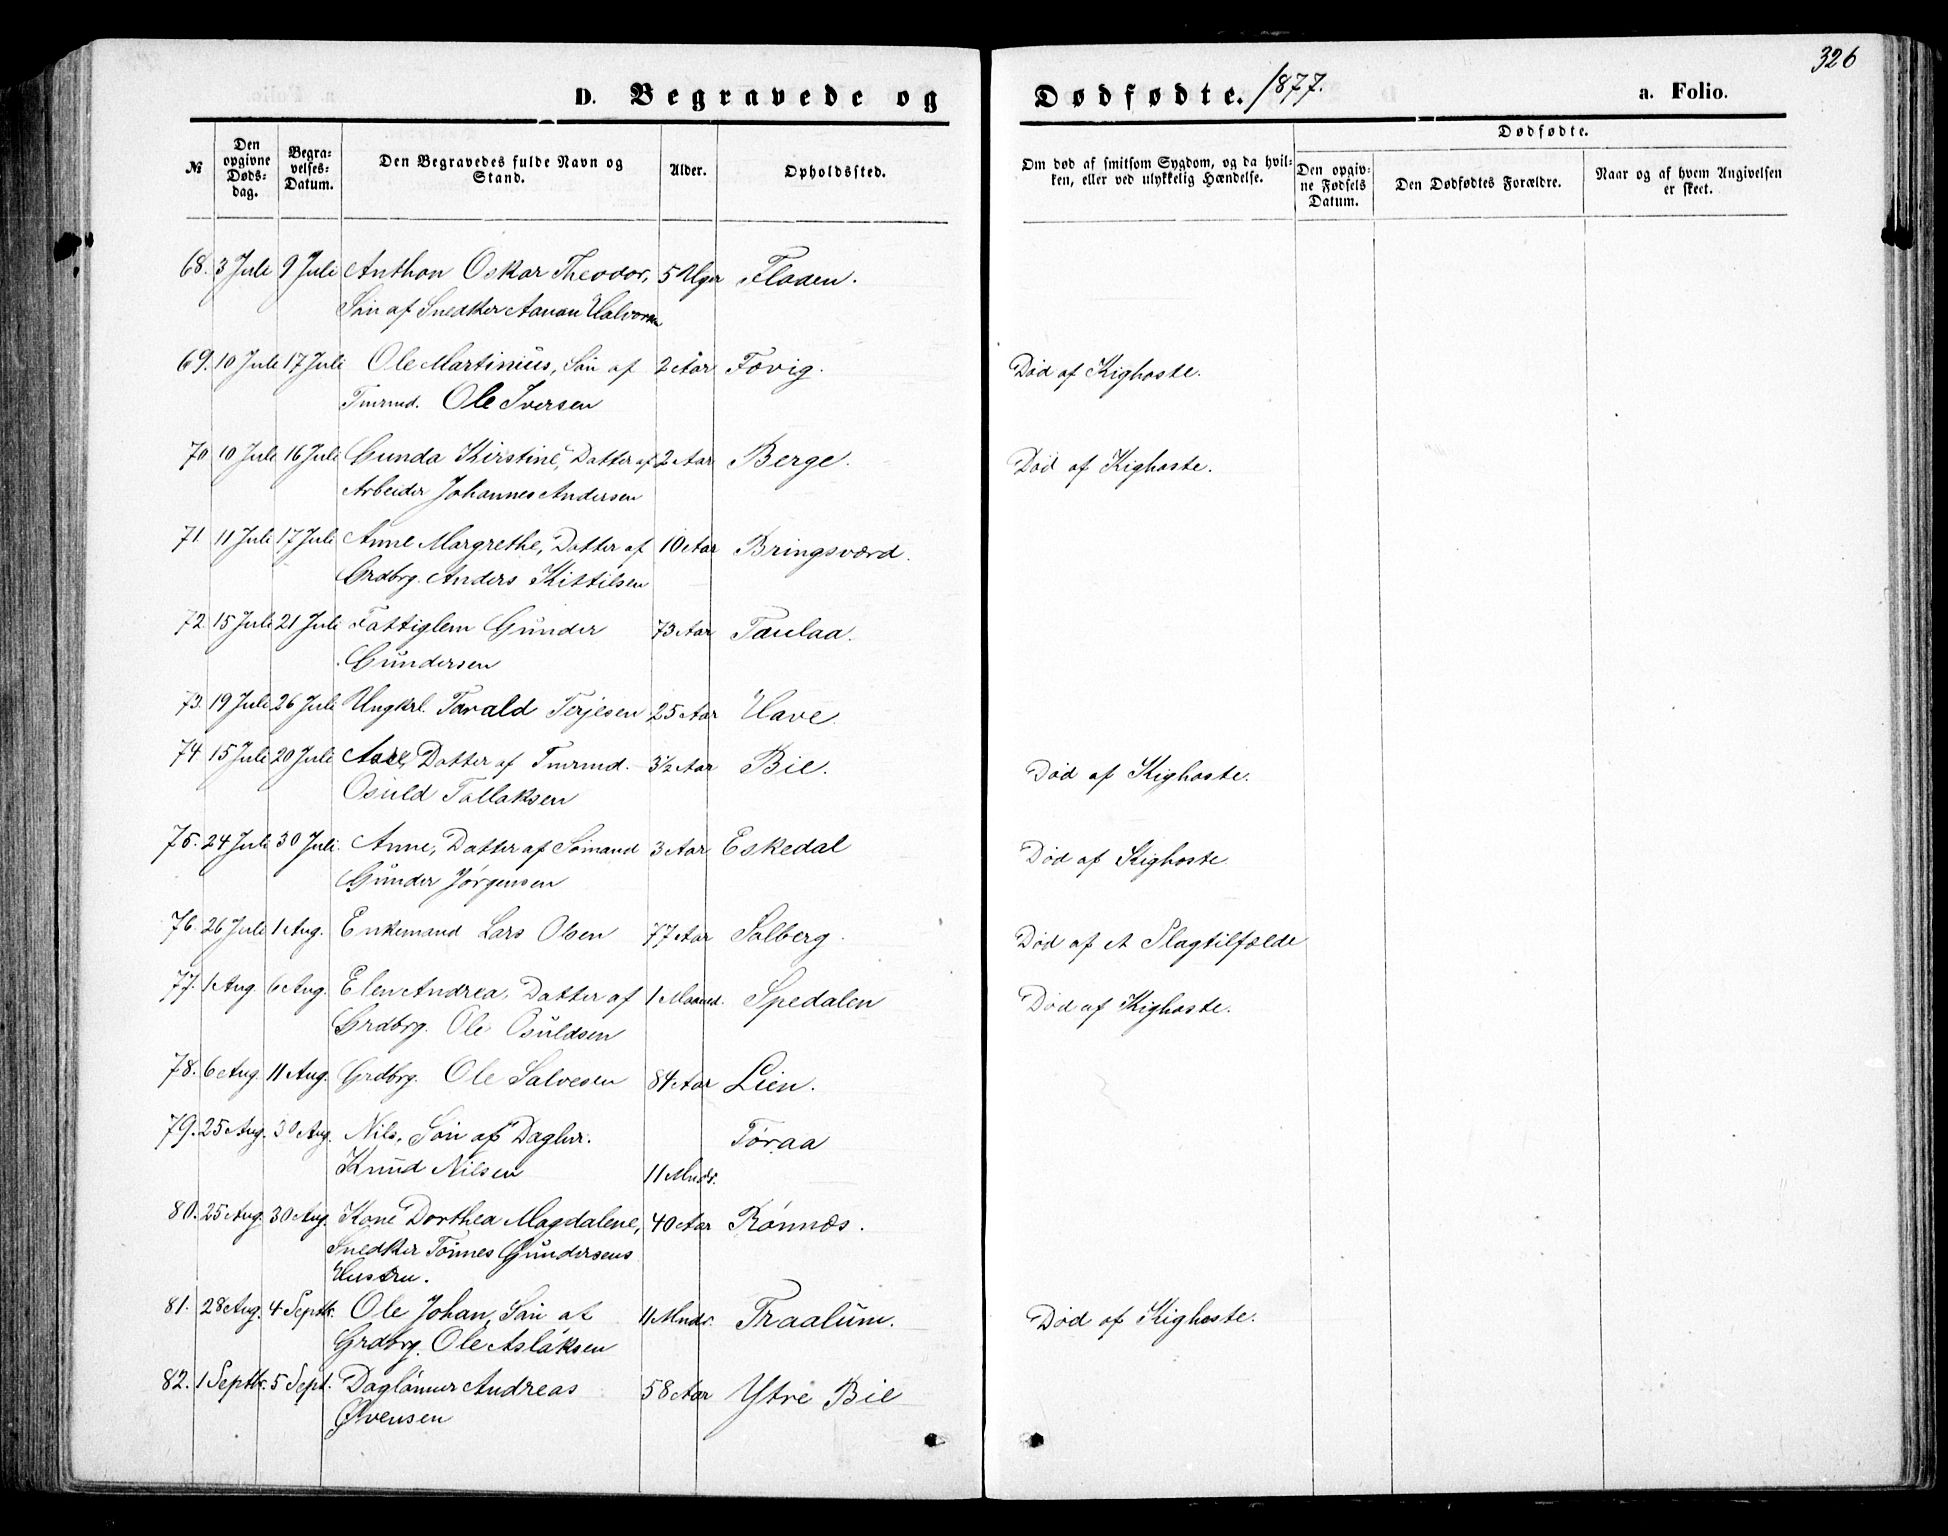 326
D. Begravede og Dødfødte. 1877.
a. Folio.
№
Den opgivne Dødsdag.
Begravelses-Datum.
Den Begravedes fulde Navn og Stand.
Alder.
Opholdssted.
Om død af smitsom Sygdom, og da hvilken, eller ved ulykkelig Hændelse.
Dødfødte.
Den opgivne Fødsels Datum.
Den Dødfødtes Forældre.
Naar og af hvem Angivelsen er skeet.
68. 3 Juli 9 Juli Anthon Oskar Theodor, 5 Uger Floden.
Søn af Snedker Aanon Halvorsen
69. 10 Juli 17 Juli Ole Martinius, Søn af 2 Aar Fevig. Død af Kighoste.
Tmrmd. Ole Iversen
70 10 Juli 16 Juli Gunda Kirstine, Datter af 2 Aar Berge. Død af Kighoste.
Arbeider Johannes Andersen
71. 11 Juli 17 Juli Anne Margrethe, Datter af 10 Aar Bringsværd.
Grdbrg. Anders Kittilsen
72. 15 Juli 21 Juli Fattiglem Gunder 73 Aar Taulaa.
Gundersen
73. 19 Juli 26 Juli Ungkrl. Tarald Terjesen 25 Aar Have.
74 15 Juli 20 Juli Aase, Datter af Tmrmd. 3½ Aar Bie. Død af Kighoste.
Osuld Tallaksen
75. 24 Juli 30 Juli. Anne, Datter af Sømand 3 Aar Eskedal Død af Kighoste
Gunder Jørgensen
76. 26 Juli 1 Aug. Enkemand Lars Olsen 77 Aar Solberg. Død af et Slagtilfælde
77. 1 Aug. 6 Aug. Elen Andrea, Datter af 1 Maaned. Spedalen Død af Kighoste.
Grdbrg. Ole Osuldsen
78. 6 Aug 11 Aug. Grdbrg. Ole Salvesen 84 Aar Lien.
79. 25 Aug. 30 Aug. Nils, Søn af Daglnr. Toraa
Knud Nilsen 11 Mndr.
80. 25 Aug. 30 Aug. Kone Dorthea Magdalene, 40 Aar Rønnæs.
Snedker Tønnes Gundersens
Hustru.
81. 28 Aug. 4 Septbr. Ole Johan, Søn af 11 Mndr. Traalum. Død af Kighoste.
Grdbrg. Ole Aslaksen
82. 1 Septbr. 5 Sept. Daglønner Andreas 58 Aar Ytre Bie
Øvensen